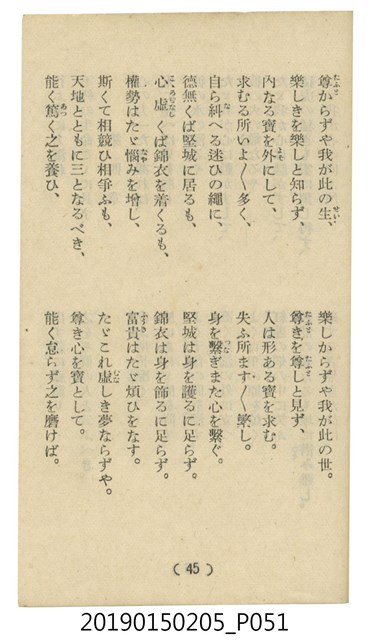 尊からずや我が此の生、 樂しからずや我が此の世。
樂しきを樂しと知らず、 尊きを尊しと見ず、
內なる寶を外にして、 人は形ある寶を求む。
求むる所いよ〳〵多く、 失ふ所ます〳〵繁し。
自ら糾へる迷ひの繩に、 身を繫ぎまた心を繫ぐ。
德無くば堅城に居るも、 堅城は身を護るに足らず。
心虛くば錦衣を着くるも、 錦衣は身を飾るに足らず。
權勢はたゞ惱みを增し、 富貴はたゞ煩ひをなす。
斯くて相競ひ相爭ふも、 たゞこれ虛しき夢ならずや。
天地とともに三となるべき、 尊き心を寶として。
能く篤く之を養ひ、 能く怠らず之を磨けば。
( 45 )
20190150205_P051